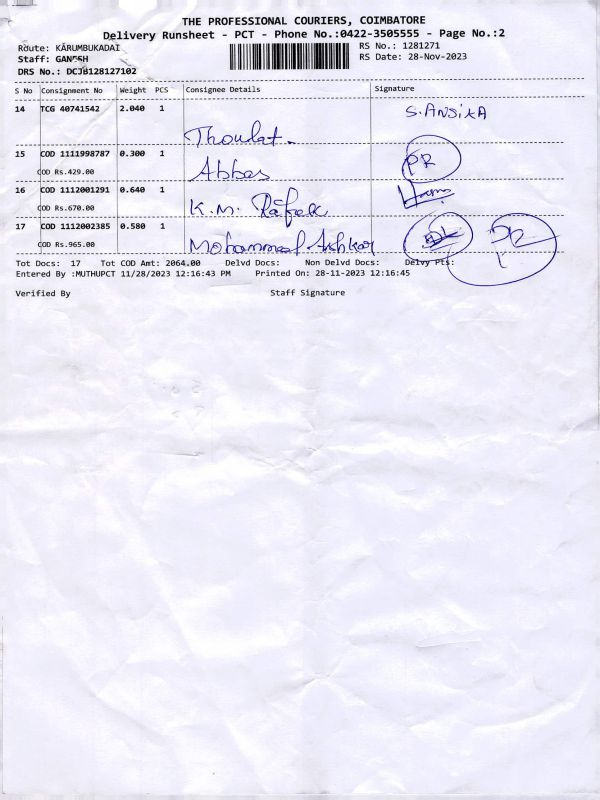 THE PROFESSIONAL COURIERS, COIMBATORE
Delivery Runsheet - PCT - Phone No.:0422-3505555 - Page No.:2
Route: KARUMBUKADAI RS No.: 1281271
Staff: GANESH RS Date: 28-Nov-2023
DRS No.: DCJB128127102
S No Consignment No Weight PCS Consignee Details Signature
14 TCG 40741542 2.040 1 S. ANSIKA
Thoulat.
15 COD 1111998787 0.300 1 Abbas PR
COD Rs.429.00
16 COD 1112001291 0.640 1
COD Rs.670.00 K.M. Rafeek
17 COD 1112002385 0.580 1
COD Rs.965.00 Mohammed Ashkar
Tot Docs: 17 Tot COD Amt: 2064.00 Delvd Docs: Non Delvd Docs: Delvy Pts:
Entered By :MUTHUPCT 11/28/2023 12:16:43 PM Printed On: 28-11-2023 12:16:45
Verified By Staff Signature